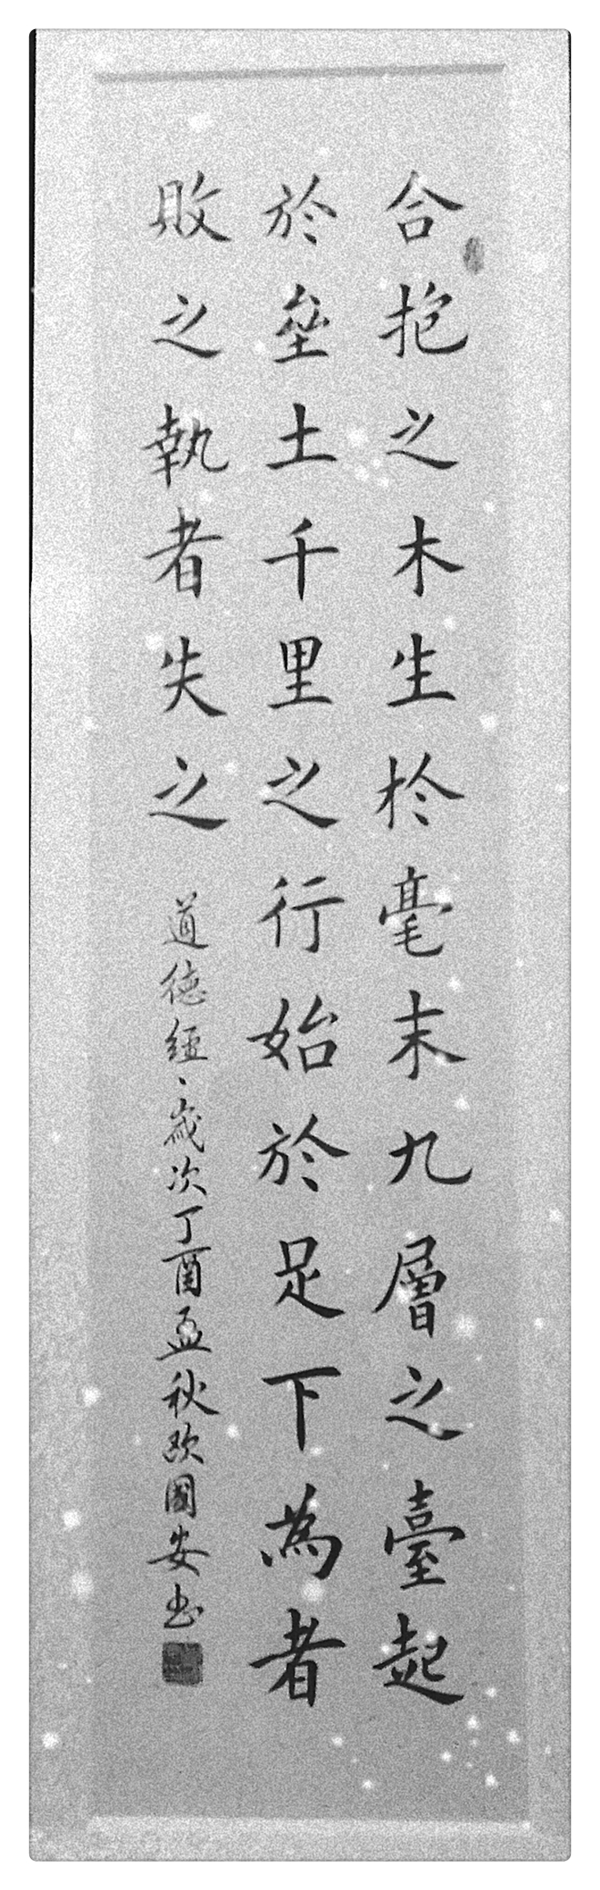 合抱之木生於毫末九層之臺起
於壘土千里之行始於足下為者
敗之執者失之
道德經、歲次丁酉孟秋歐國安書